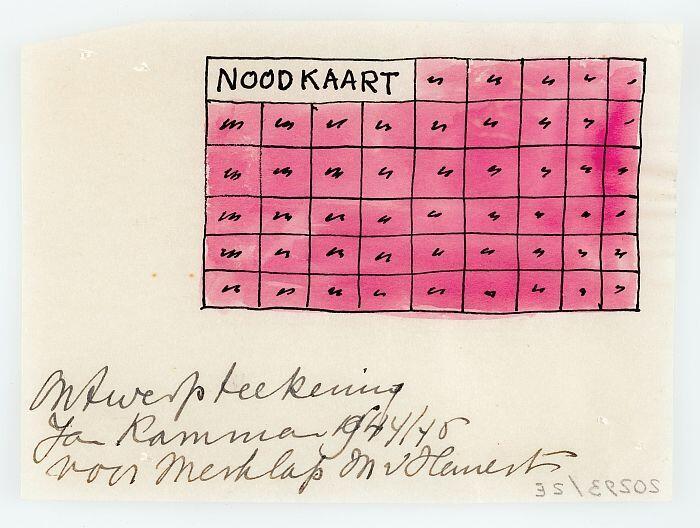 NOODKAART
Ontwerpteekening
Jan Kamman 1944/45
voor Merklap M v Hemert